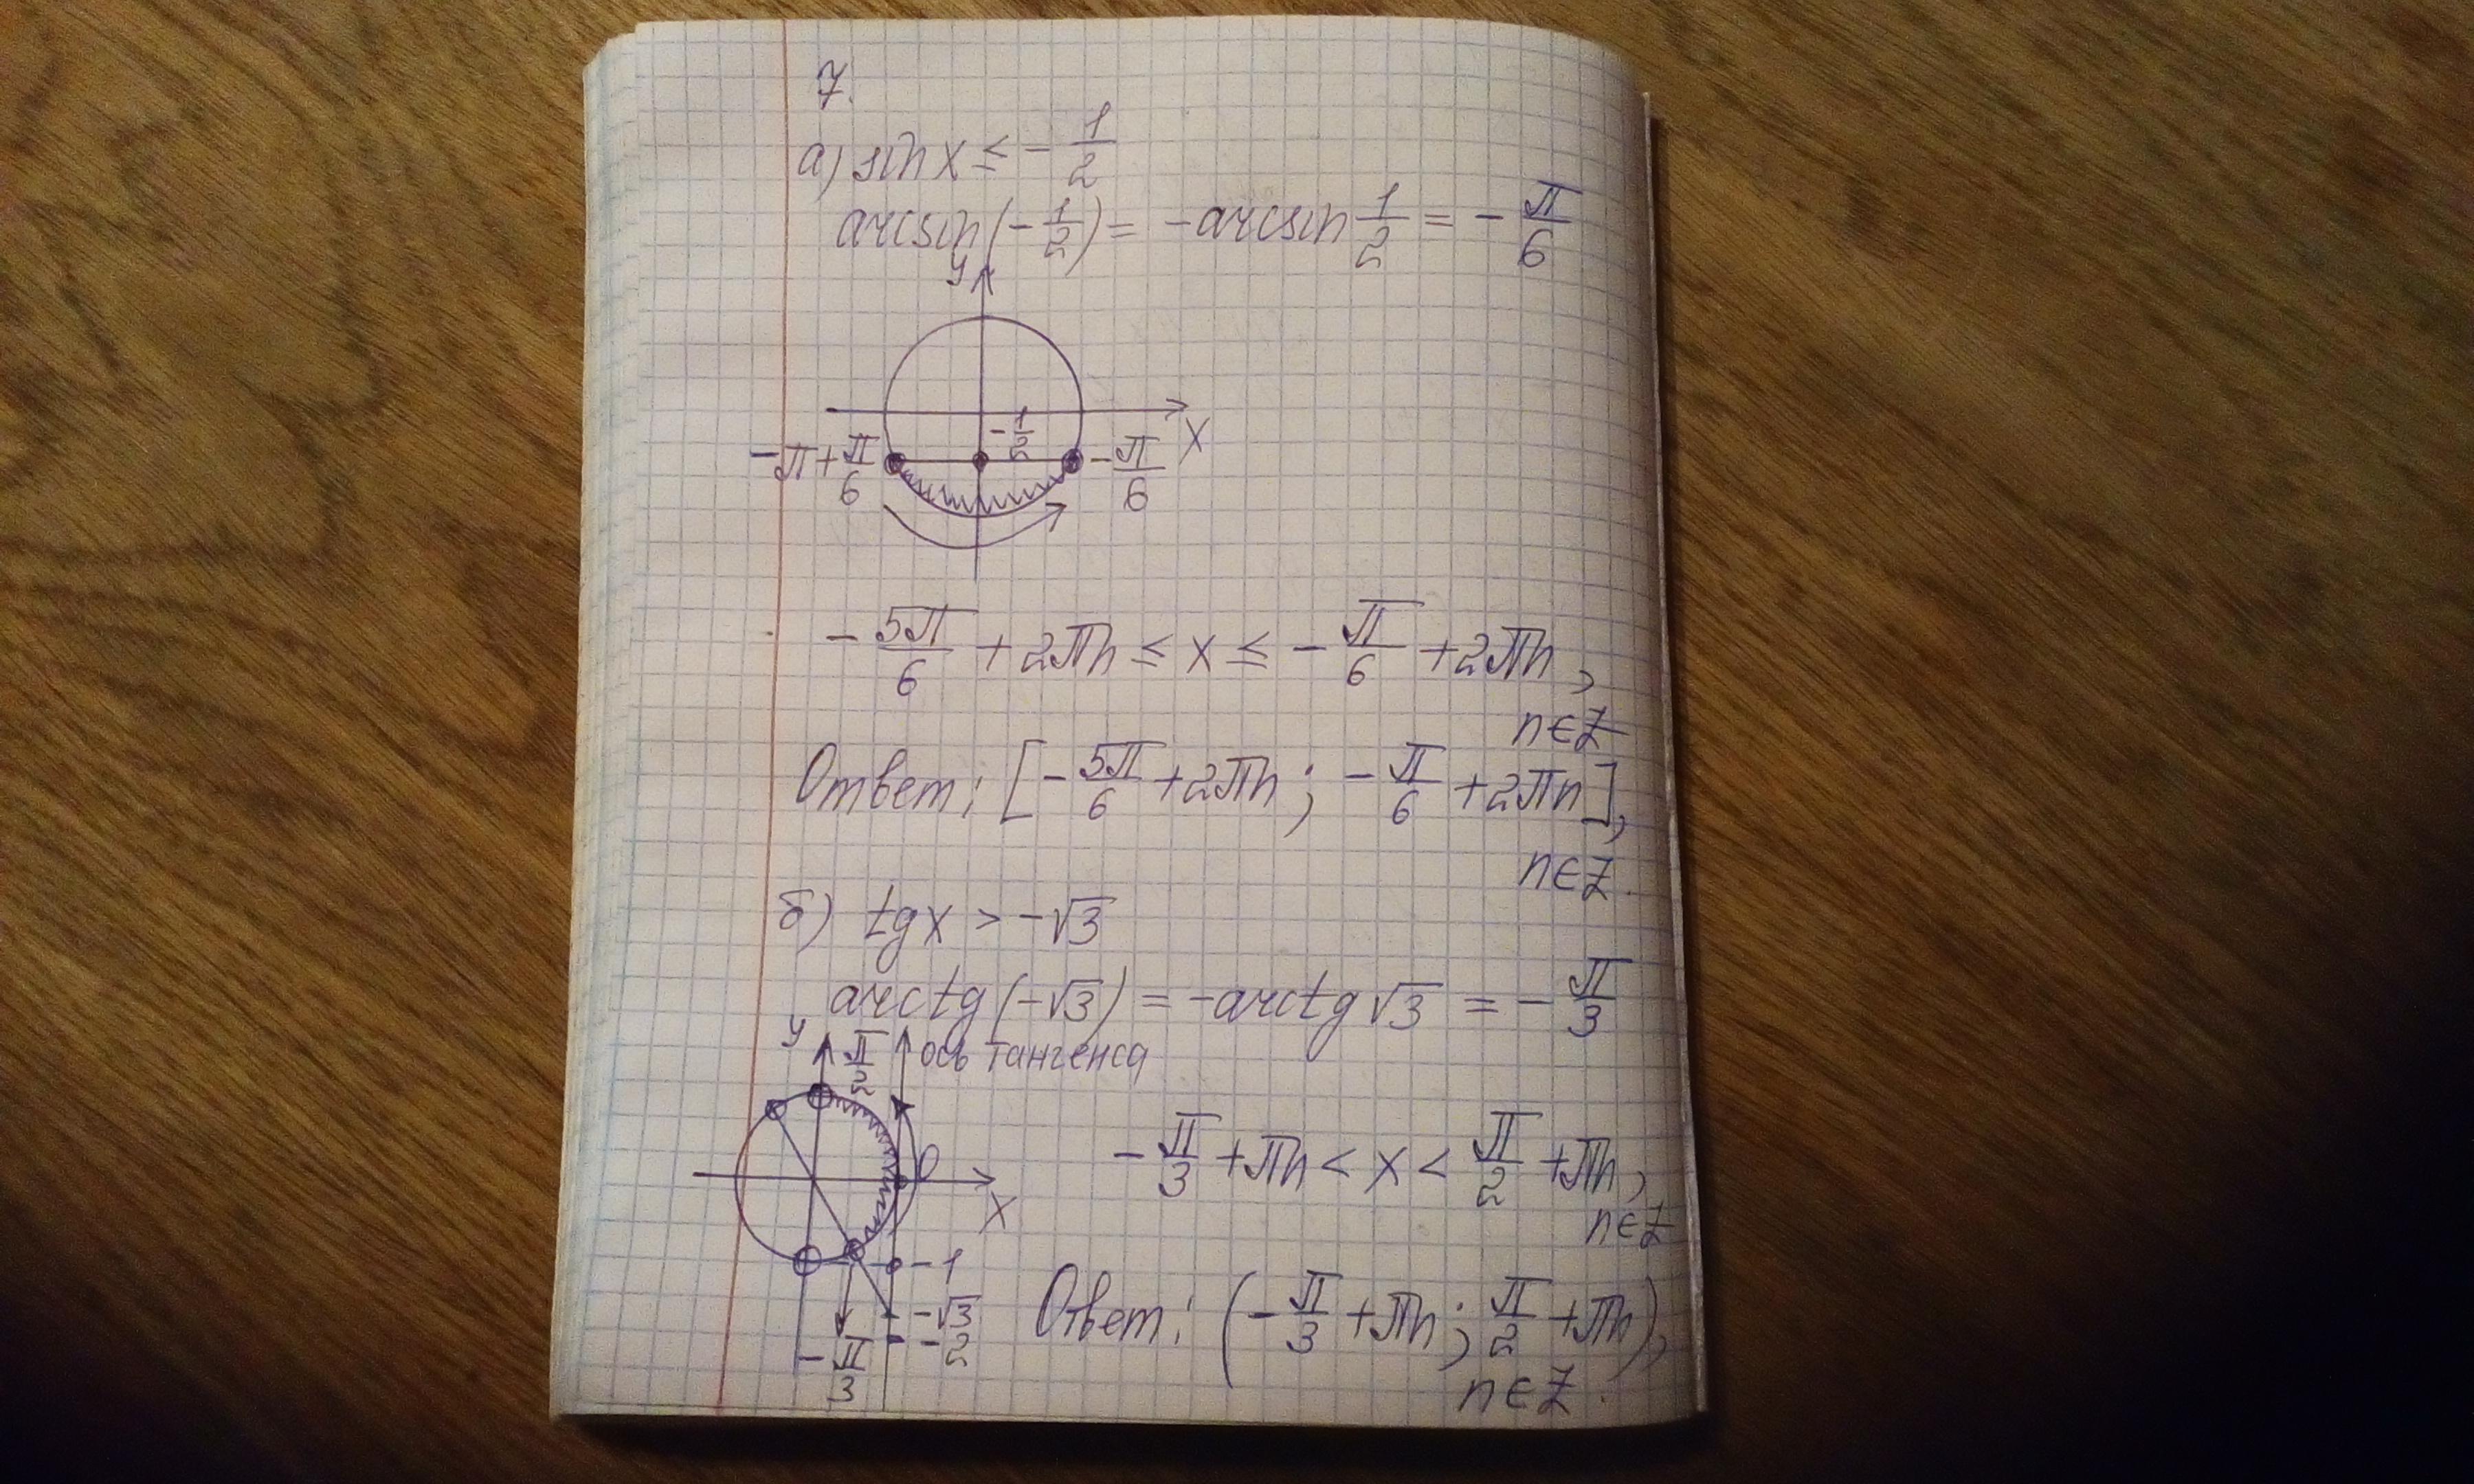 7.
а) sin x ≤ - 1/2
arcsin(-1/2) = -arcsin 1/2 = - π/6
y
x
- 1/2
-π + π/6
- π/6
- 5π/6 + 2πn ≤ x ≤ - π/6 + 2πn,
n ∈ Z
Ответ: [- 5π/6 + 2πn; - π/6 + 2πn],
n ∈ Z.
б) tg x > -√3
arctg(-√3) = -arctg √3 = - π/3
y
π/2
ось тангенса
0
x
-1
-√3
-2
- π/3
- π/3 + πn < x < π/2 + πn,
n ∈ Z
Ответ: (- π/3 + πn; π/2 + πn),
n ∈ Z.